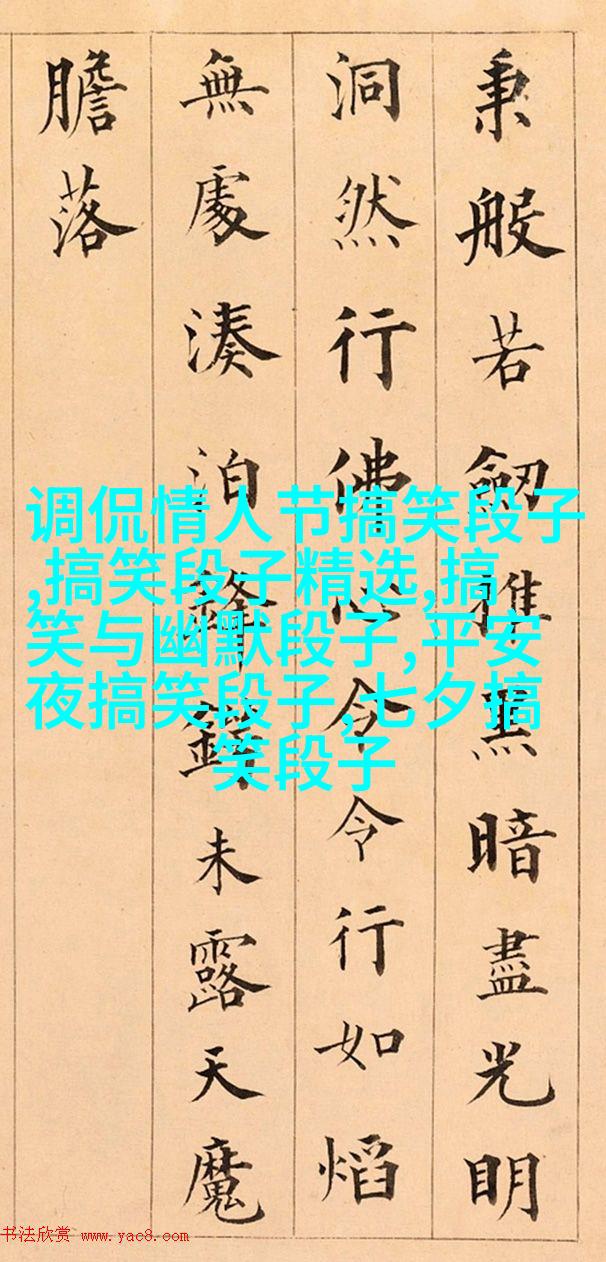 秉般若劒摧黑暗盡光明
洞然行佛心令令行如焰
無處湊泊鋒鍔未露天魔
膽落
调侃情人节搞笑段子
,搞笑段子精选,搞
笑与幽默段子,平安
夜搞笑段子,七夕搞
笑段子
书法欣赏 www.yac8.com